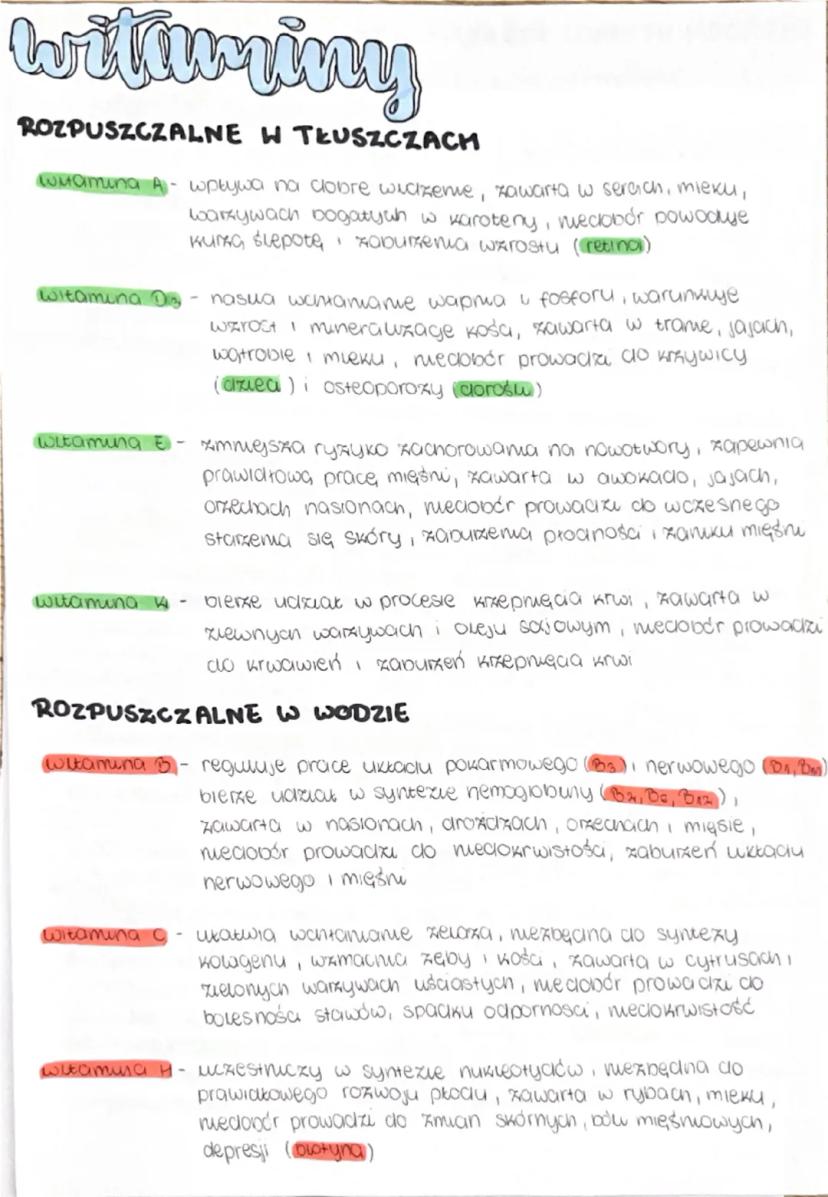 witaminy
ROZPUSZCZALNE W TŁUSZCZACH
witamina A - wpływa na dobre widzenie, zawarta w serach, mleku,
warzywach bogatych w karoteny, niedobór powoduje
kurzą ślepotę i zaburzenia wzrostu (retinol)
witamina D3 - nasila wchłanianie wapnia i fosforu, warunkuje
wzrost i mineralizację kości, zawarta w tranie, jajach,
wątrobie i mleku, niedobór prowadzi do krzywicy
(dzieci) i osteoporozy (dorośli)
witamina E - zmniejsza ryzyko zachorowania na nowotwory, zapewnia
prawidłową pracę mięśni, zawarta w awokado, jajach,
orzechach nasionach, niedobór prowadzi do wczesnego
starzenia się skóry, zaburzenia płodności i zaniku mięśni
witamina K - bierze udział w procesie krzepnięcia krwi, zawarta w
zielonych warzywach i oleju sojowym, niedobór prowadzi
do krwawień i zaburzeń krzepnięcia krwi
ROZPUSZCZALNE W WODZIE
witamina B - reguluje prace układu pokarmowego (B3) i nerwowego (B1,
bierze udział w syntezie hemoglobiny (B2, B6, B12),
zawarta w nasionach, drożdżach, orzechach i mięsie,
niedobór prowadzi do niedokrwistości, zaburzeń układu
nerwowego i mięśni
witamina C - ułatwia wchłanianie żelaza, niezbędna do syntezy
kolagenu, wzmacnia zęby i kości, zawarta w cytrusach i
zielonych warzywach liściastych, niedobór prowadzi do
bolesności stawów, spadku odporności, niedokrwistość
witamina H - uczestniczy w syntezie nukleotydów, niezbędna do
prawidłowego rozwoju płodu, zawarta w rybach, mleku,
niedobór prowadzi do zmian skórnych, bólu mięśniowych,
depresji (biotyna)